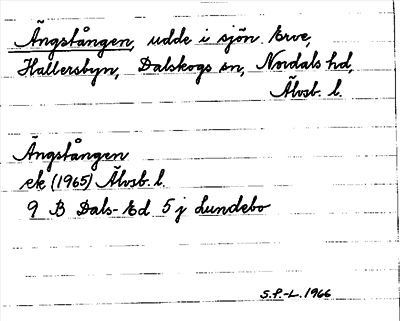 Ängstången, udde i sjön Erve,
Hallersbyn, Dalskogs sn, Nordals hd,
Älvsb. l.
Ängstången
ek (1965) Älvsb. l.
9 B Dals-Ed 5 j Lundebo
S.F.-L. 1966